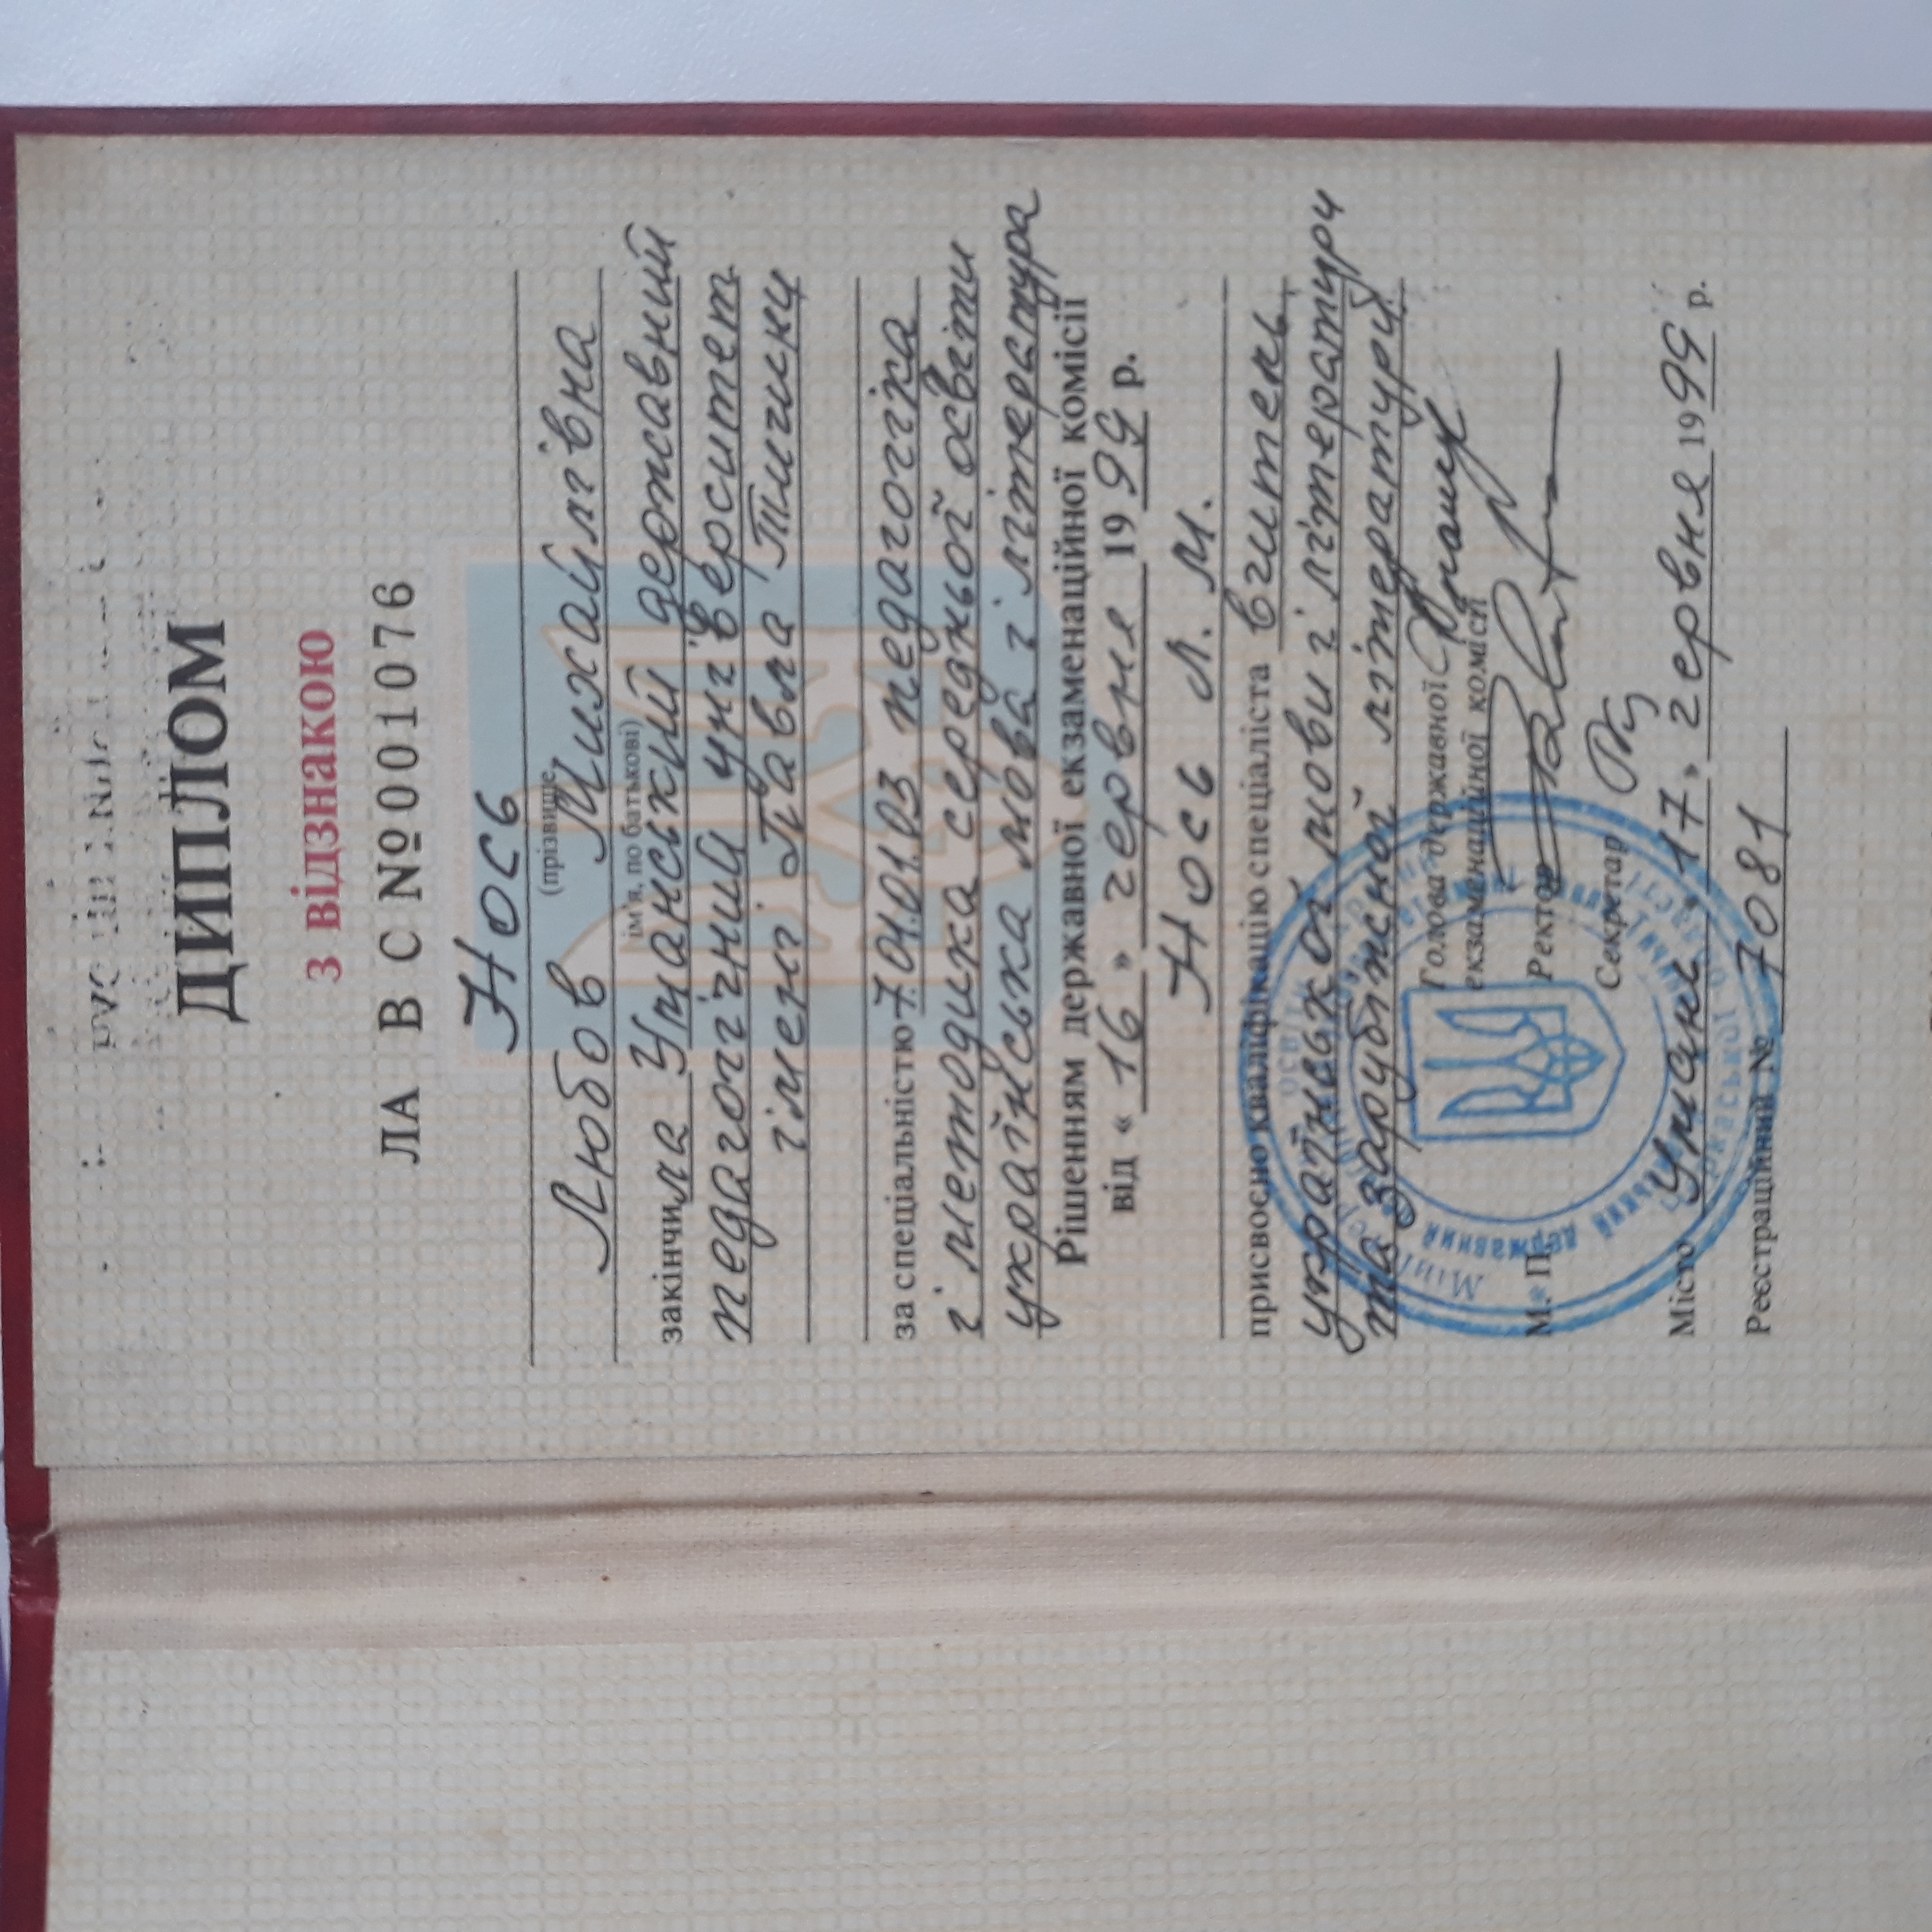 ДИПЛОМ
З ВІДЗНАКОЮ
ЛА ВС №001076
Нось
(прізвище,
Любов Михайлівна
ім'я, по батькові)
закінчила Уманський державний
педагогічний університет
імені Павла Тичини
за спеціальністю 7.01.01.03 педагогіка
і методика середньої освіти
українська мова і література
Рішенням державної екзаменаційної комісії
від « 16 » червня 1999 р.
Нось Л. М.
присвоєно кваліфікацію спеціаліста вчитель
української мови і літератури
та зарубіжної літератури
Голова державної
екзаменаційної комісії
М. П. Ректор
Секретар
Місто Умань « 17 » червня 1999 р.
Реєстраційний № 7081